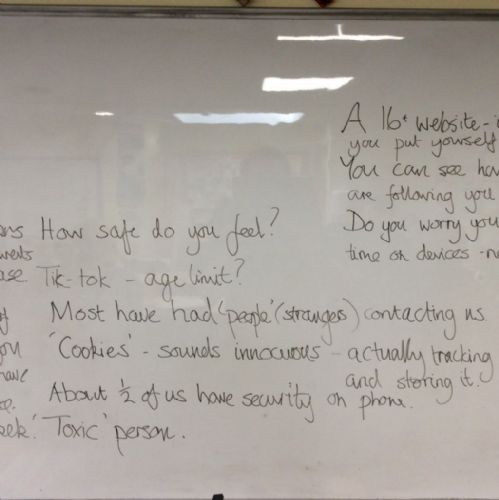 A 16+ website -
you put yourself
You can see how
are following you
Do you worry you
time on devices -
How safe do you feel?
Tik-tok - age limit?
Most have had 'people' (strangers) contacting us.
'Cookies' - sounds innocuous - actually tracking
and storing it.
About ½ of us have security on phone.
'Toxic' person.